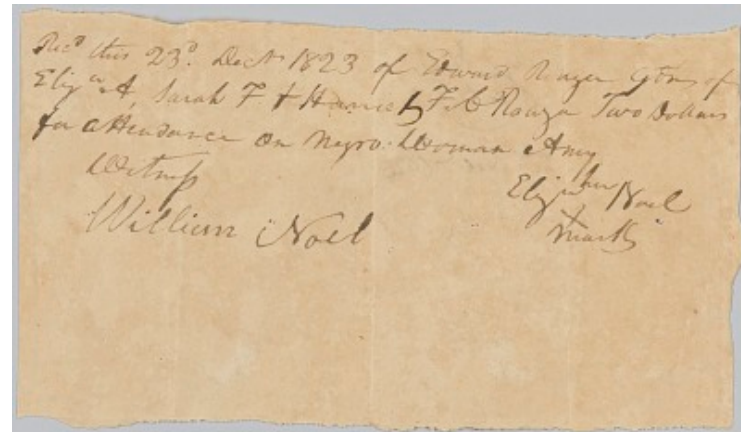 Recd this 23d. Decr 1823 of Edward Rouzee Gdn of
Elizth A, Sarah F & Harriet F. C Rouzee Two Dollars
for attendance on Negro Woman Amy
Witness
Elizth her Noel
William Noel
X
mark